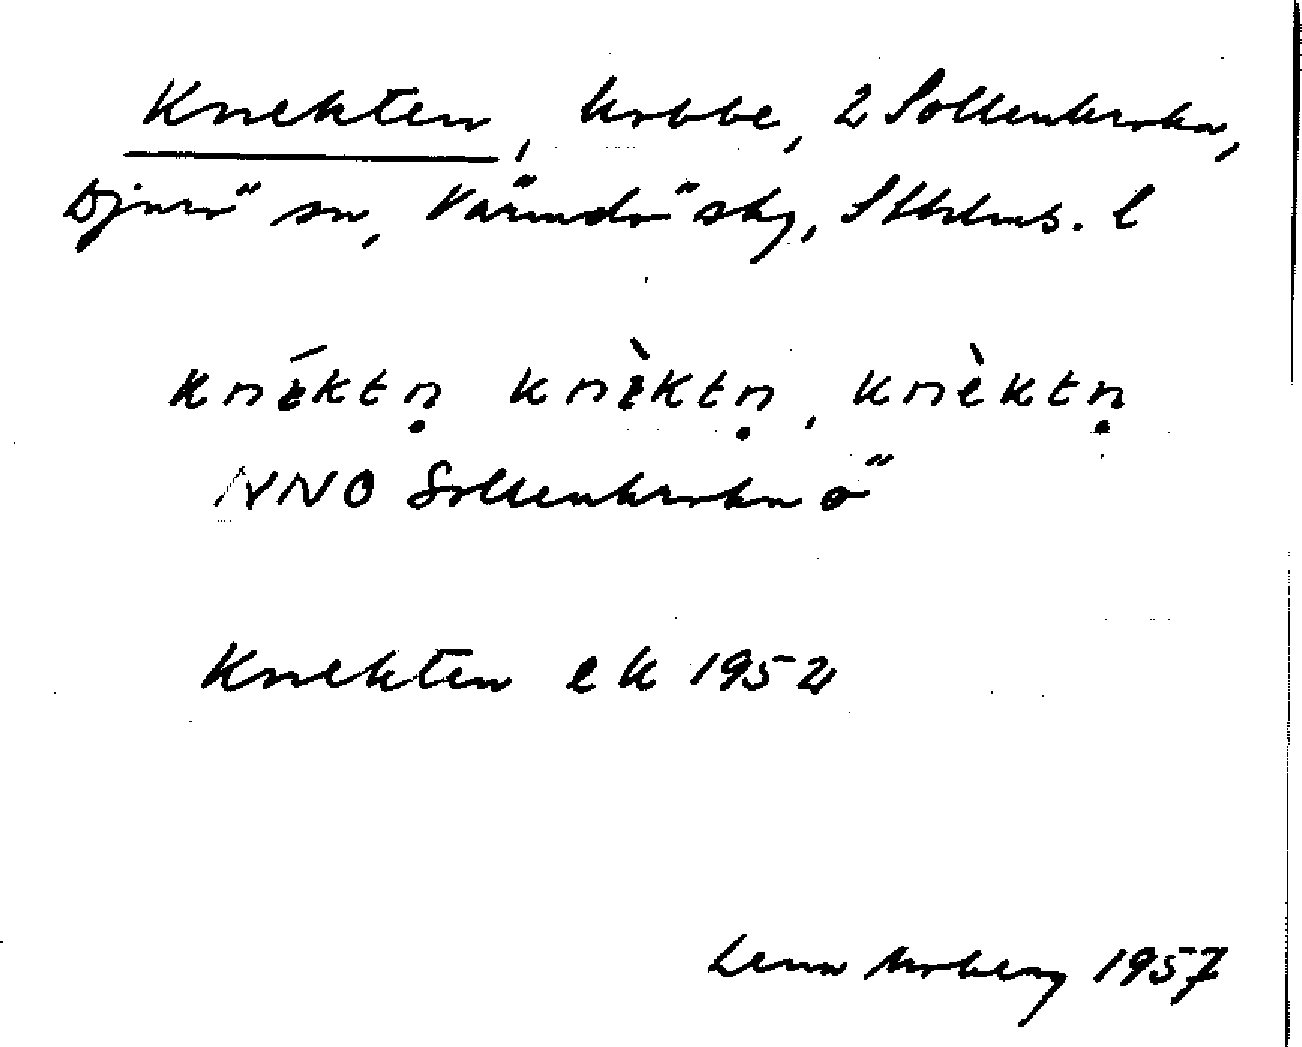 Knekten, kobbe, 2 Sollenkroka,
Djurö sn, Värmdö skg, Sthlms. l
knɛ́ktn̥ knɛ̀ktn̥, knèktn̥
NNO Sollenkroka ö
Knekten ek 1952
Lena Moberg 1957